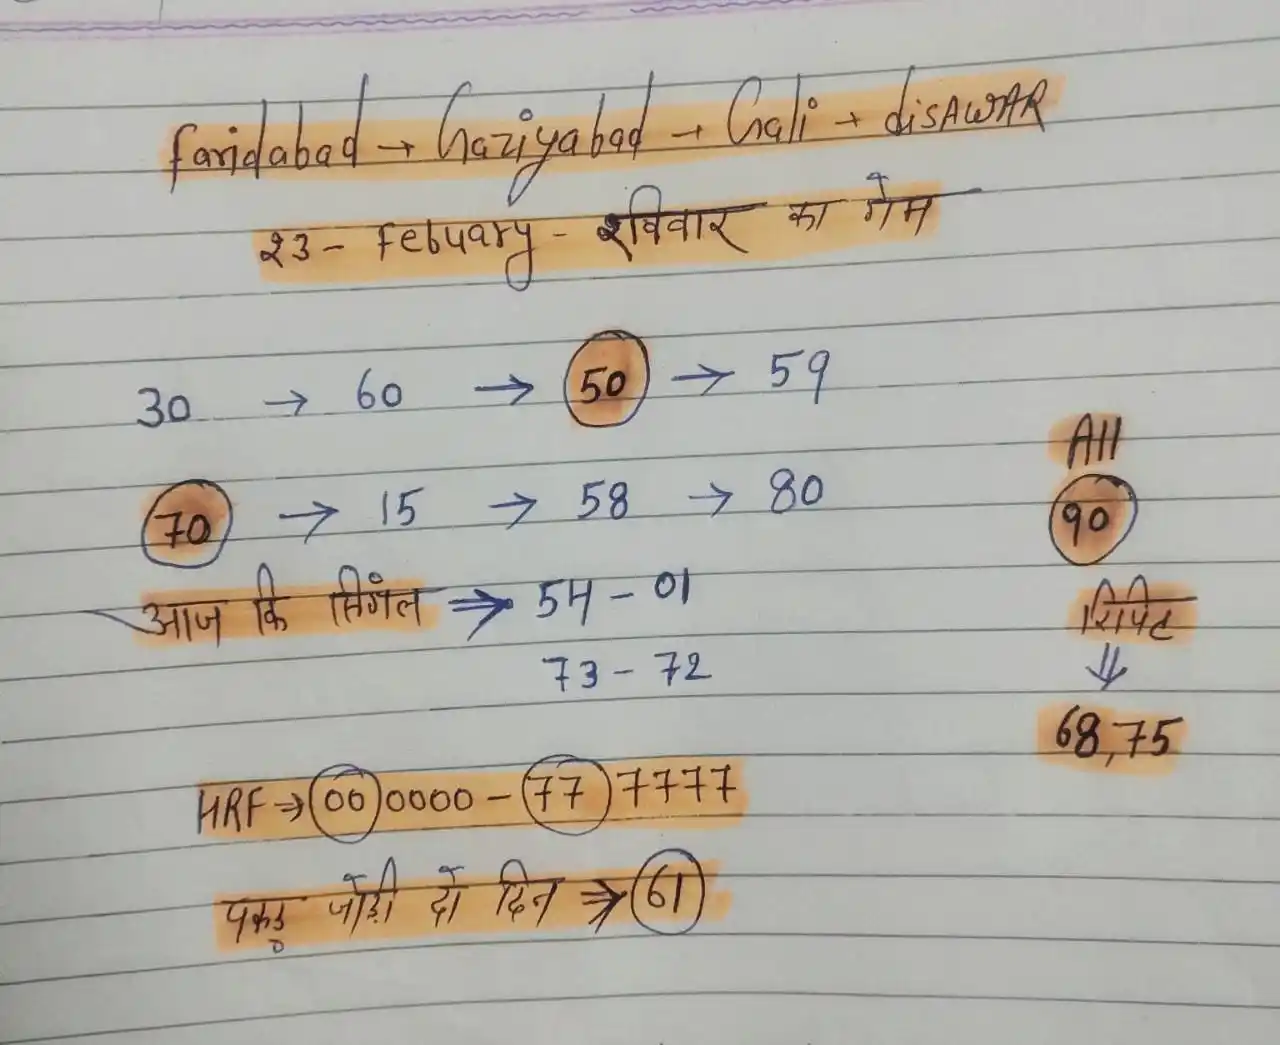 faridabad → Gaziyabad → Gali → disAWAR
23 - Febuary - रविवार का गेम
30 → 60 → 50 → 59
70 → 15 → 58 → 80
All
90
आज कि सिंगल ⇒ 54 - 01
73 - 72
रिपिट
⇓
68,75
HRF → 00 0000 - 77 7777
पकड़ जोड़ी दो दिन ⇒ 61